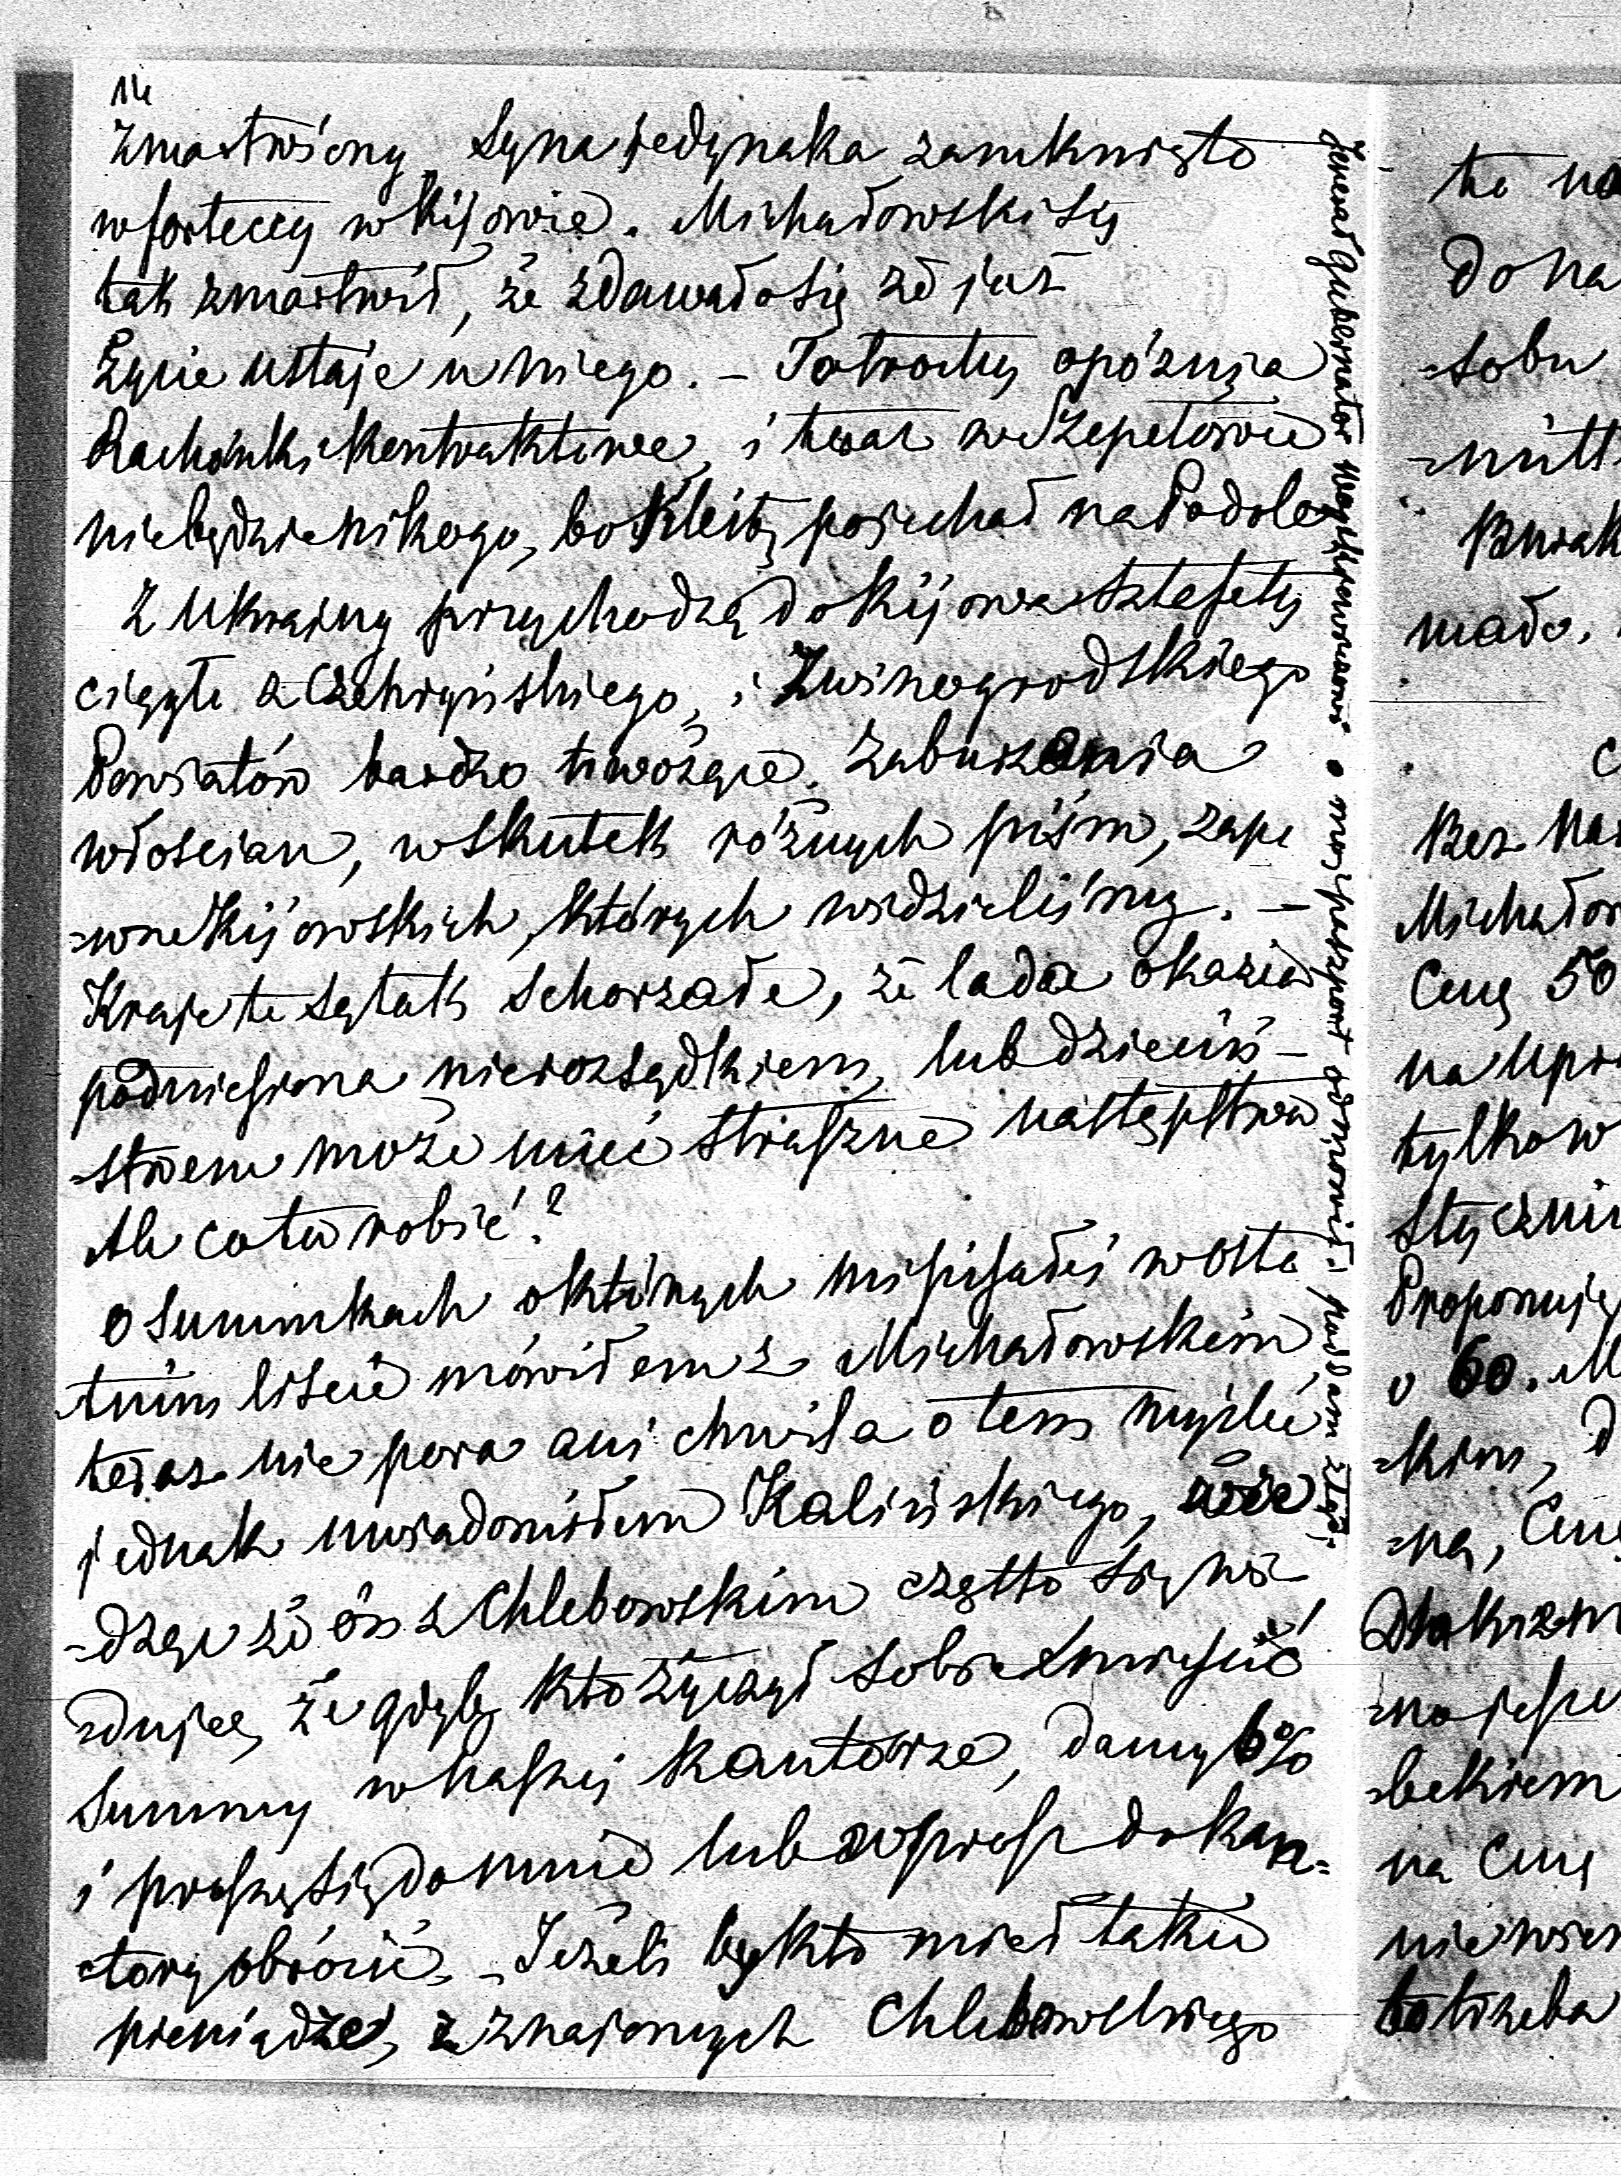 14
zmartwiony Syna jedynaka zamknięto
w fortecy w Kijowie. Michałowski się
tak zmartwił, że zdawało się że już
życie ustaje u niego. – To trochę opóźnia
Rachunki Kontraktowe, i teraz w Szepetówce
nie będzie nikogo, bo Kleitz pojechał na Podole
Z Ukrainy przychodzą do Kijowa sztafety
ciągłe z Czehryńskiego, i Zwinogrodskiego
Powiatów bardzo trwożące. Zaburzenia
włoscian, w skutek różnych pism, zape
=wne Kijowskich, których widzieliśmy. –
Kraje te są tak schorzałe, że lada okazia
podniesiona nierozsądkiem, lub dzieciń–
=stwem może mieć straszne następstwa
Ale co tu robić?
O Summkach o których mi pisałeś w osta
=tnim liście mówiłem z Michałowskim,
teraz nie pora ani chwila o tem myśleć
jednak uwiadomiłem Kalińskiego, wie
=dząc że on z Chlebowskim często się wi
=duje, że gdyby kto życzył sobie umieścić
Summy w naszej kantorze, damy 6%
i proszę się do mnie lub wprost do kan=
=tory obrócić. – Jeżeli by kto miał takie
pieniądze, z znajomych Chlebowskiego
Jenerał Gubernator Wasylczykow o mój paszport odmówił. podam ztąd
te na
do na
=sobu
=nitt
Burak
mało.
Bez Na
Michałow
Cenę 50
na Upr
tylko w
Styczni
Proponuję
o 60. M
=kim, d
=ną, Cenę
=no jesz
=bekiem
na Cenę
nie wie
to trzeba